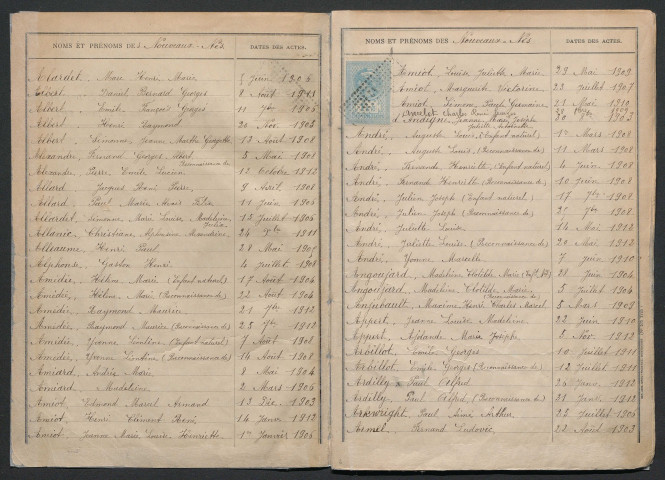 NOMS ET PRÉNOMS DES Nouveaux-Nés DATES DES ACTES.
Allardet. Marie Juin 1906
Albert. Daniel Bernard Georges 8 Août
Albert. Emile François Georges 11 1905
Albert. Henri Raymond 20 Nov.
Albert. Simonne, Jeanne Marthe Georgette 13 Août 1908
Alexandre, Fernand Georges Albert 5 Mai 1901
(Reconnaissance de)
Alexandre, Pierre, Emile Lucien 12 Octobre 1912
Allard Jacques Henri Pierre, 9 Août 1901
Allard, Paul Marie 11 Juin 1906
Allardet, Simonne Marie Louise Madeleine 12 Juillet 1906
Alanic, Christiane Alphonsine Amandrine 24 1911
Alleaume, Henri Paul 28 Mai 1905
Alphonse, Gaston Henri 4 Juillet 1908
Amédée, Hélène Marie (Enfant naturel) 17 Août 1904
Amédée, Hélène Marie (Reconnaissance de) 22 Août 1904
Amédée, Raymond Maurice 21 7bre 1912
Amédée, Raymond Maurice (Reconnaissance de) 25 7bre 1912
Amédée, Yvonne Léontine (Enfant naturel) 7 Août 1908
Amédée, Yvonne Léontine (Reconnaissance de) 14 Août 1908
Amiard, Andrée Marie 8 Mai 1904
Amiard, Madeleine 2 Mars 1906
Amiot, Edmond Marcel Armand 13 Déc. 1903
Amiot, Henri Clément 14 Janv. 1912
Amiot, Jeanne Marie Louise Henriette 1er Janvier 1905
NOMS ET PRÉNOMS DES Nouveaux-Nés DATES DES ACTES.
Amiot, Louise Juliette Marie 23 Mai 1909
Amiot, Marguerite Victorine 22 Juillet 1907
Amiot, Simonne Paule Germaine 21 Mai 1910
Charles
Jeanne Marie Joseph 1903
Juliette Antoinette
André, Auguste Louis (Enfant naturel) 1er Mars 1908
André, Auguste Louis (Reconnaissance de) 11 Mars 1908
André, Fernande Henriette (Enfant naturel) 4 Juin 1908
André, Fernande Henriette (Reconnaissance de) 10 Juin 1908
André, Julien Joseph (Enfant naturel) 17 7bre 1908
André, Julien Joseph (Reconnaissance de) 27 7bre 1908
André, Juliette Louise 14 Mai 1912
André, Juliette Louise (Reconnaissance de) 20 Mai 1912
André, Yvonne Marcelle 7 Juin 1910
Angoujard, Madeleine Clotilde Marie 28 Juin 1904
Angoujard, Madeleine Clotilde Marie 5 Juillet 1904
(Reconnaissance de)
Anjubault, Maxime Henri Charles Marcel 5 Mars 1909
Appert, Jeanne Louise Madeleine 22 Juin 1910
Appert, Marie Joseph 2 Nov. 1912
Arbillot, Emile Georges 10 Juillet 1911
Arbillot, Emile Georges (Reconnaissance de) 12 Juillet 1911
Ardilly, Paul Alfred 20 Janv. 1912
Ardilly, Paul Alfred (Reconnaissance de) 21 Janv. 1912
Arkwright, Paul Aimé Arthur 22 Juillet 1906
Armel, Fernand Ludovic 22 Août 1903